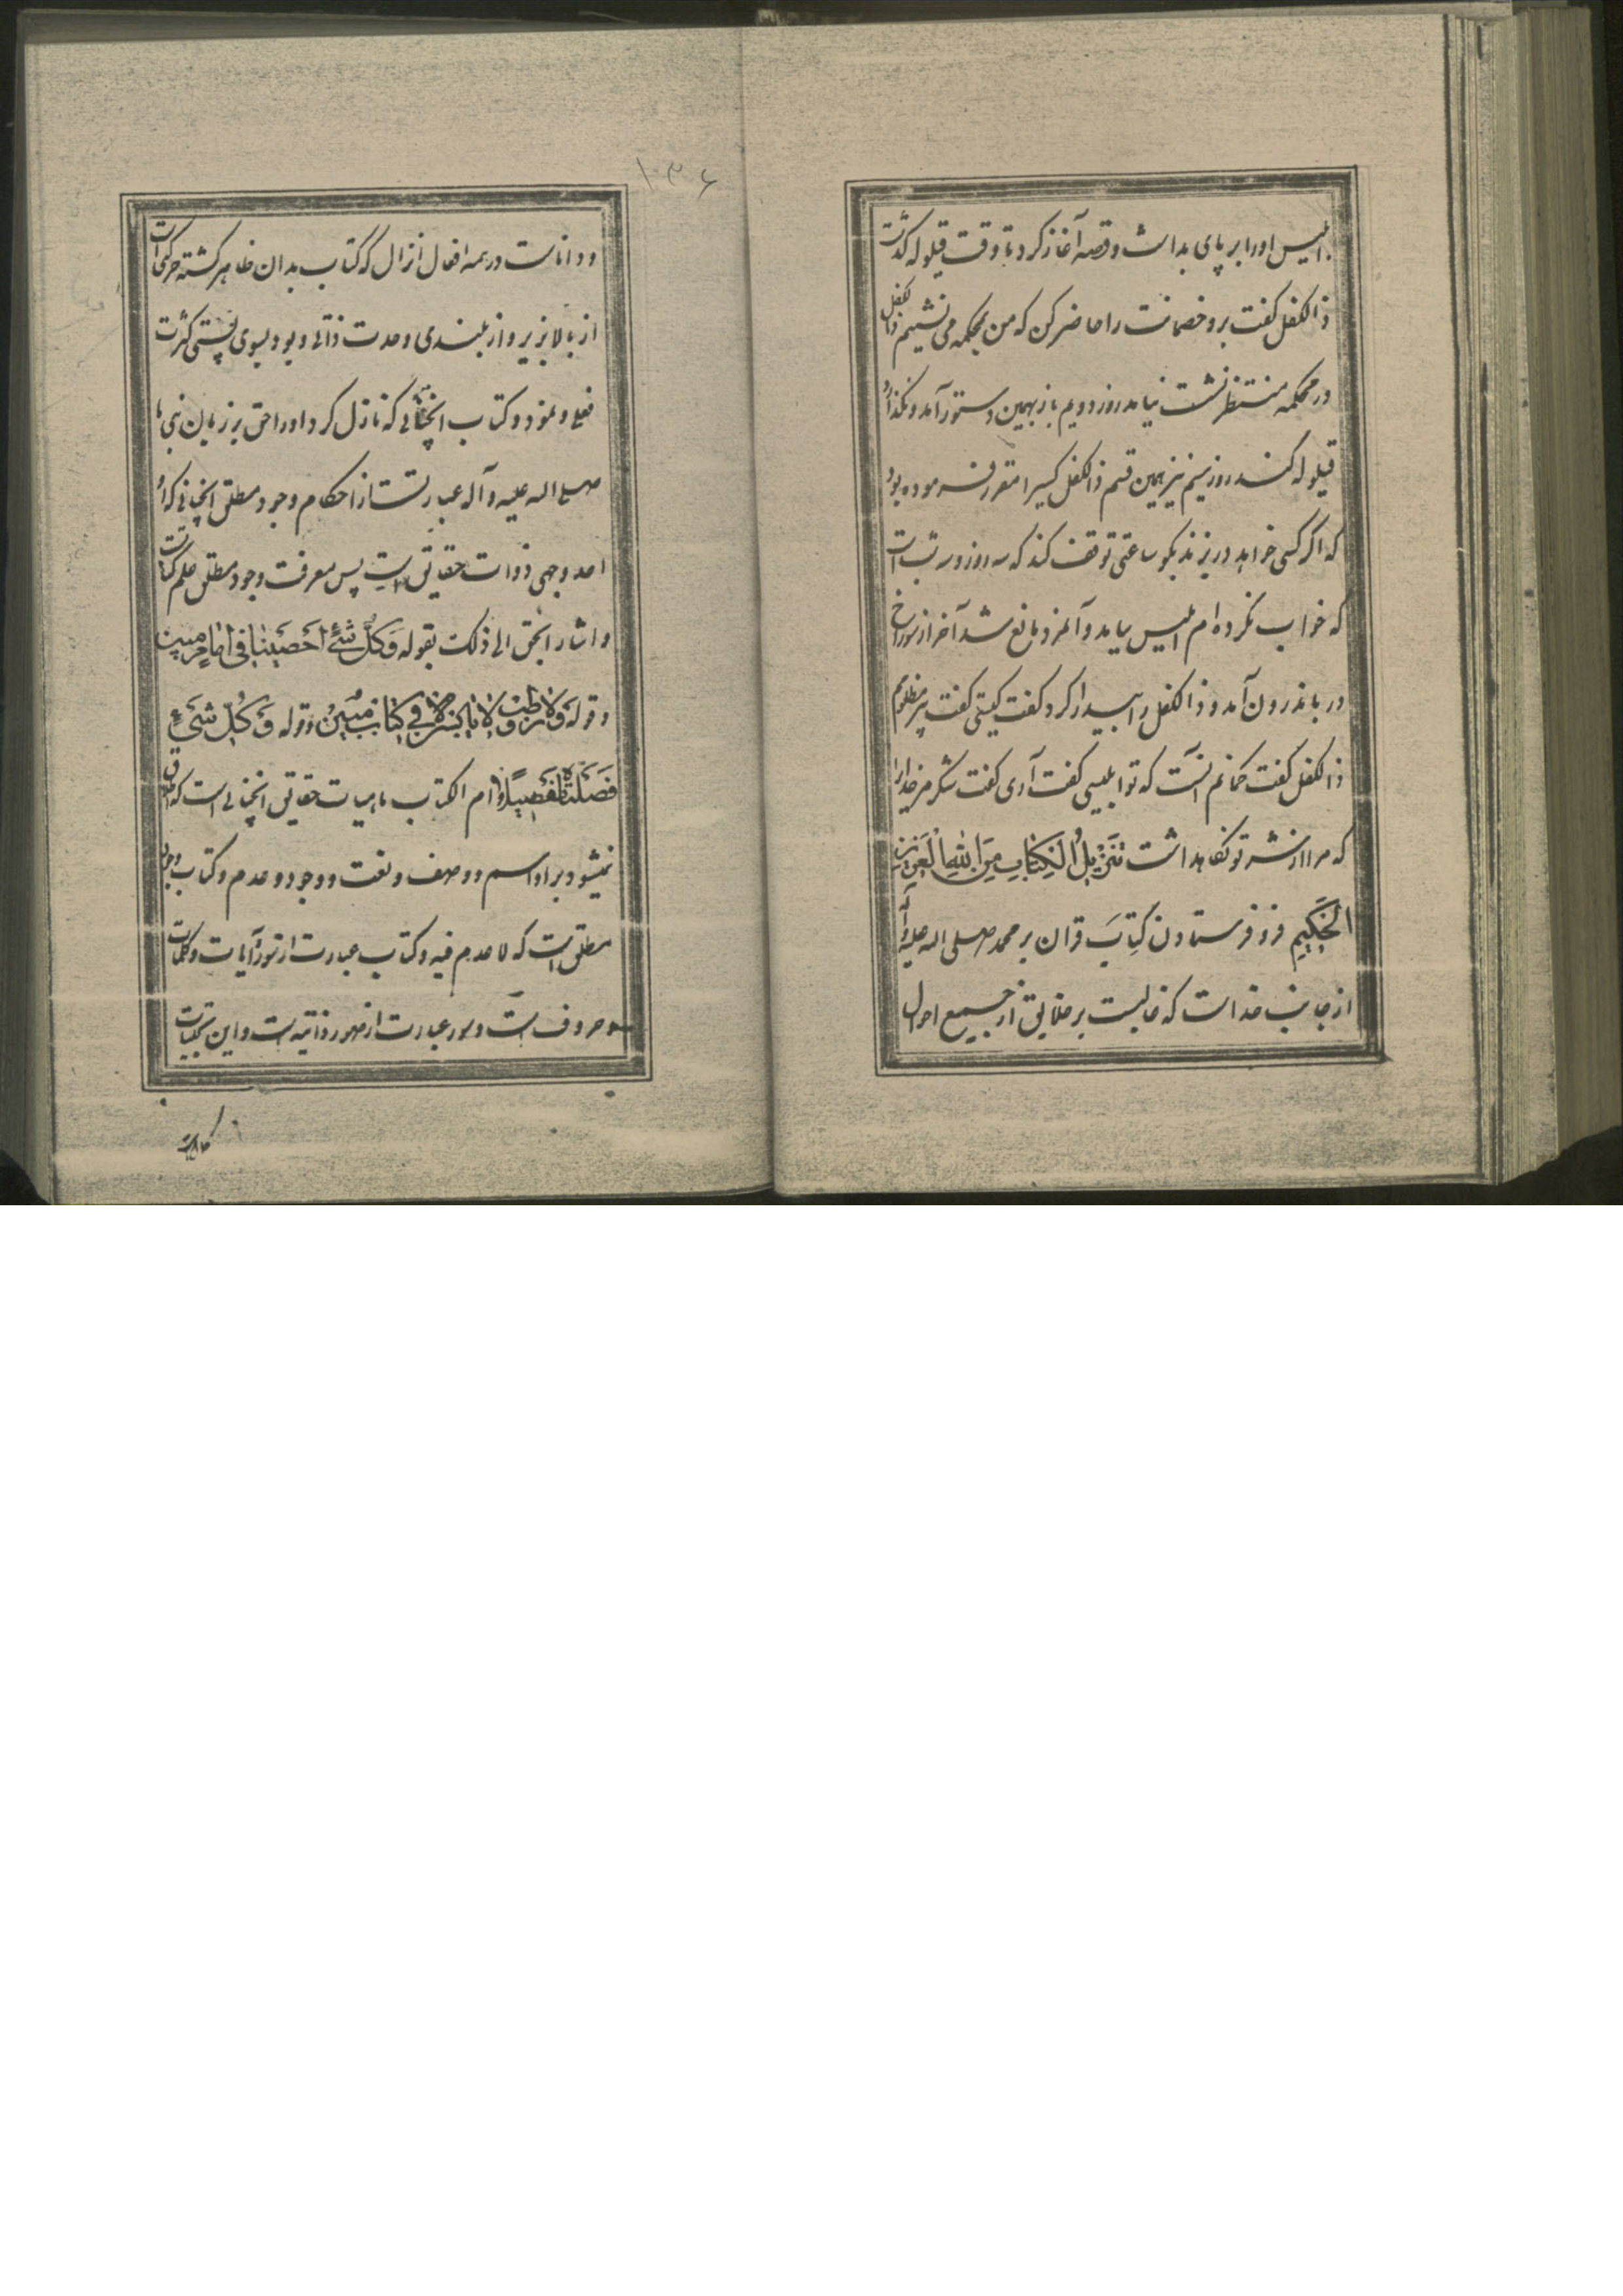 ابلیس اورا بر پای بداشت و قصه آغاز کرد تا وقت قیلوله گذشت
ذالکفل گفت برو خصمانت را حاضر کن که من بمحکمه می نشینم ذالکفل
در محکمه منتظر نشست نیامد روز دویم باز بهمین دستور آمد و نگذاشت
قیلوله کند روز سیم نیز بهمین قسم ذالکفل کسیرا مقرر فرموده بود
که اگر کسی خواهد در بزند بگو ساعتی توقف کند که سه روز و سه شب است
که خواب نکرده ام ابلیس بیامد و آنمرد مانع شد آخر از سوراخ
در باندرون آمد و ذالکفل را بیدار کرد گفت کیستی گفت پیر مظلوم
ذالکفل گفت گمانم آنست که تو ابلیسی گفت آری گفت شکر مر خدا را
که مرا از شر تو نگاهداشت تَنْزِیلُ الْکِتَابِ مِنَ اللهِ الْعَزِیزِ
الْحَکِیمِ فرو فرستادن کتاب قران بر محمد صلی الله علیه و آله
از جانب خداست که غالبست بر خلایق از جمیع احوال
۱۳۶
و داناست در همه افعال انزال که کتاب بدان ظاهر گشته حرکت است
از بالا بزیر و از بلندی وحدت ذاتی و بود بسوی پستی کثرت
فعلی و نمود و کتاب انچنانی که نازل کرد اورا حق بر زبان نبی ما
صلی الله علیه و آله عبارتست از احکام وجود مطلق انچنانی که او
احد وجهی ذوات حقایق است پس معرفت وجود مطلق علم کتاب است
و اشار الحق الی ذلک بقوله وَکُلَّ شَیْءٍ اَحْصَیْنَاهُ فِی اِمَامٍ مُبِینٍ
و قوله وَلَا رَطْبٍ وَلَا یَابِسٍ اِلَّا فِی کِتَابٍ مُبِینٍ و قوله وَ کُلَّ شَیْءٍ
فَصَّلْنَاهُ تَفْصِیلًا و ام الکتاب ماهیات حقایق انچنانی است که اطلاق
نمیشود بر او اسم و وصف و نعت و وجود و عدم و کتاب وجود
مطلق است که لا عدم فیه و کتاب عبارت از سور و آیات و کلمات
و حروف است و سور عبارت از صور ذاتیه است و این تجلیات